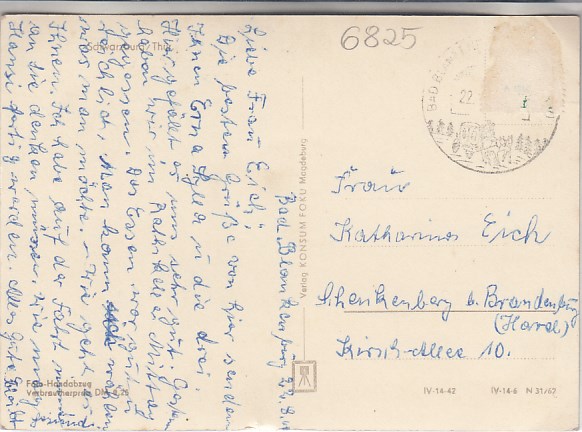 6825
Schwarzburg/Thür.
Bad Blankenburg 22.8.
Liebe Frau Eich,
Die besten Grüße von hier senden
Ihnen Erna Sylla u. die drei.
Hier gefällt es uns sehr gut. Gestern
haben wir im Ratskeller Mittag
gegessen. Das Essen war gut u.
reichlich. Man kann wählen
was man möchte. Wie geht es
Ihnen. Ich habe auf der Fahrt
an Sie denken müssen, wie
Hansi fertig werden. Alles Gute
Foto-Handabzug
Verbraucherpreis DM 0,25
Verlag KONSUM FOKU Magdeburg
BAD
22.
Frau
Katharina Eich
Schenkenberg b. Brandenburg
(Havel)
Kirsch-Allee 10.
IV-14-42 IV-14-6 N 31/62